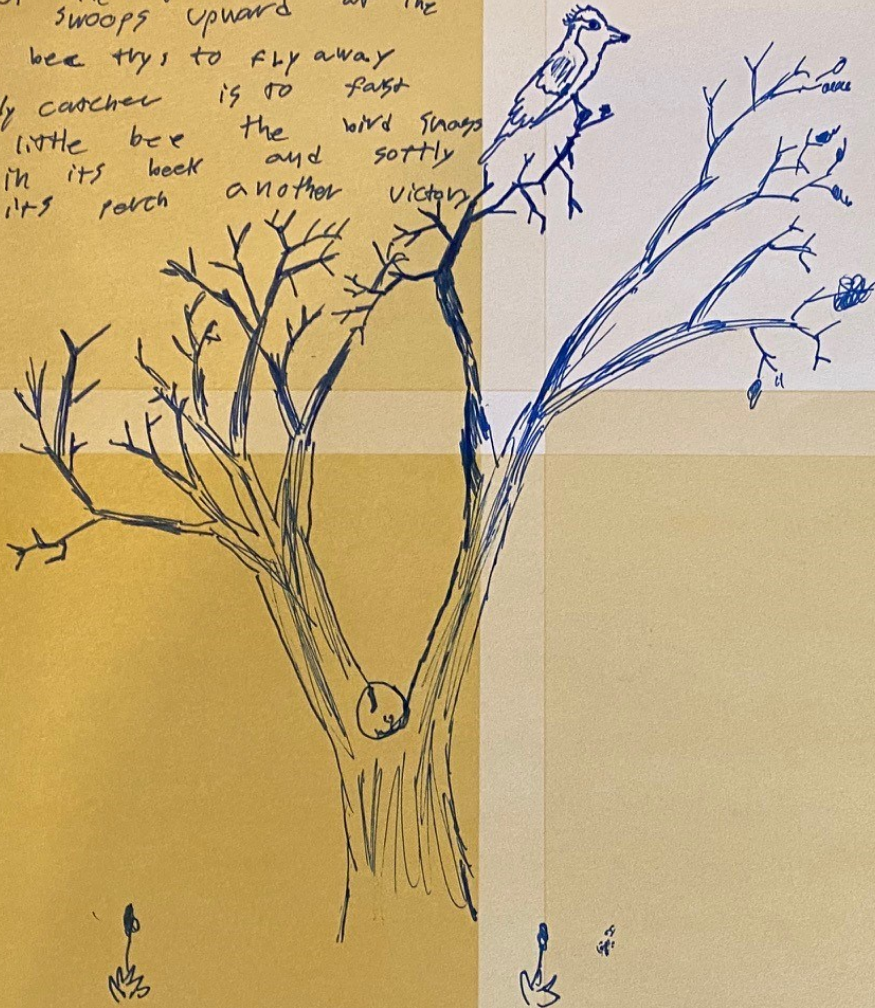 swoops upward the
bee trys to fly away
catcher is to fast
little bee the bird snags
in its beek and softly
its perch another victory